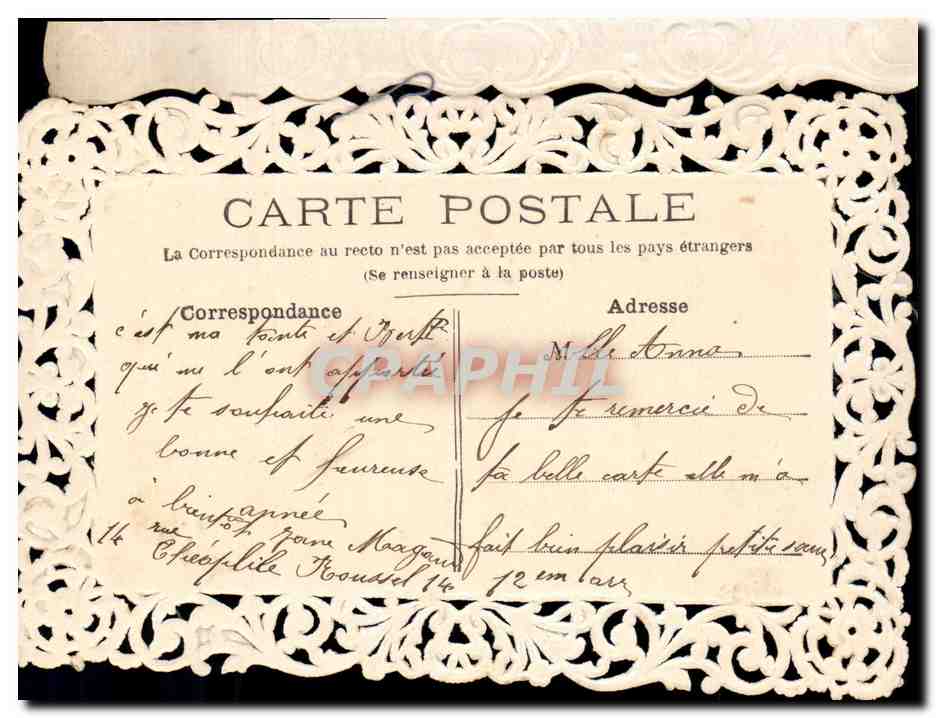 CARTE POSTALE
La Correspondance au recto n'est pas acceptée par tous les pays étrangers
(Se renseigner à la poste)
Correspondance
c'est ma tante et
qui me l'ont apportés
je te souhaite une
bonne et heureuse
année
à bientôt
14 rue
Théophile Roussel 14
Adresse
Mlle Anna
Je te remercie de
ta belle carte elle m'a
fait bien plaisir petite
12 em arr
CPAPHIL